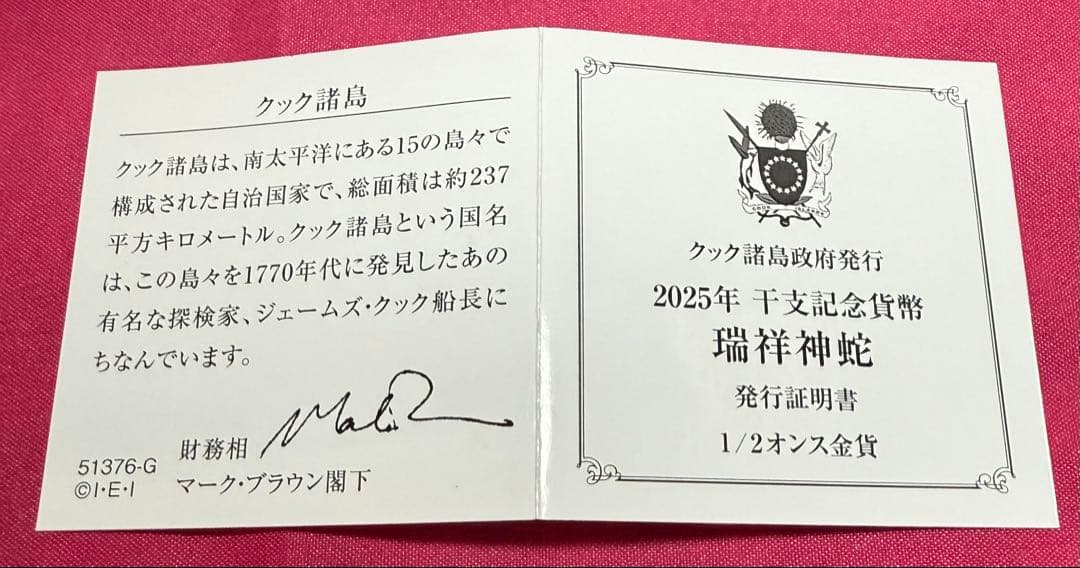 クック諸島
クック諸島は、南太平洋にある15の島々で
構成された自治国家で、総面積は約237
平方キロメートル。クック諸島という国名
は、この島々を1770年代に発見したあの
有名な探検家、ジェームズ・クック船長に
ちなんでいます。
財務相
マーク・ブラウン閣下
51376-G
©I・E・I
COOK ISLANDS
クック諸島政府発行
2025年 干支記念貨幣
瑞祥神蛇
発行証明書
1/2オンス金貨